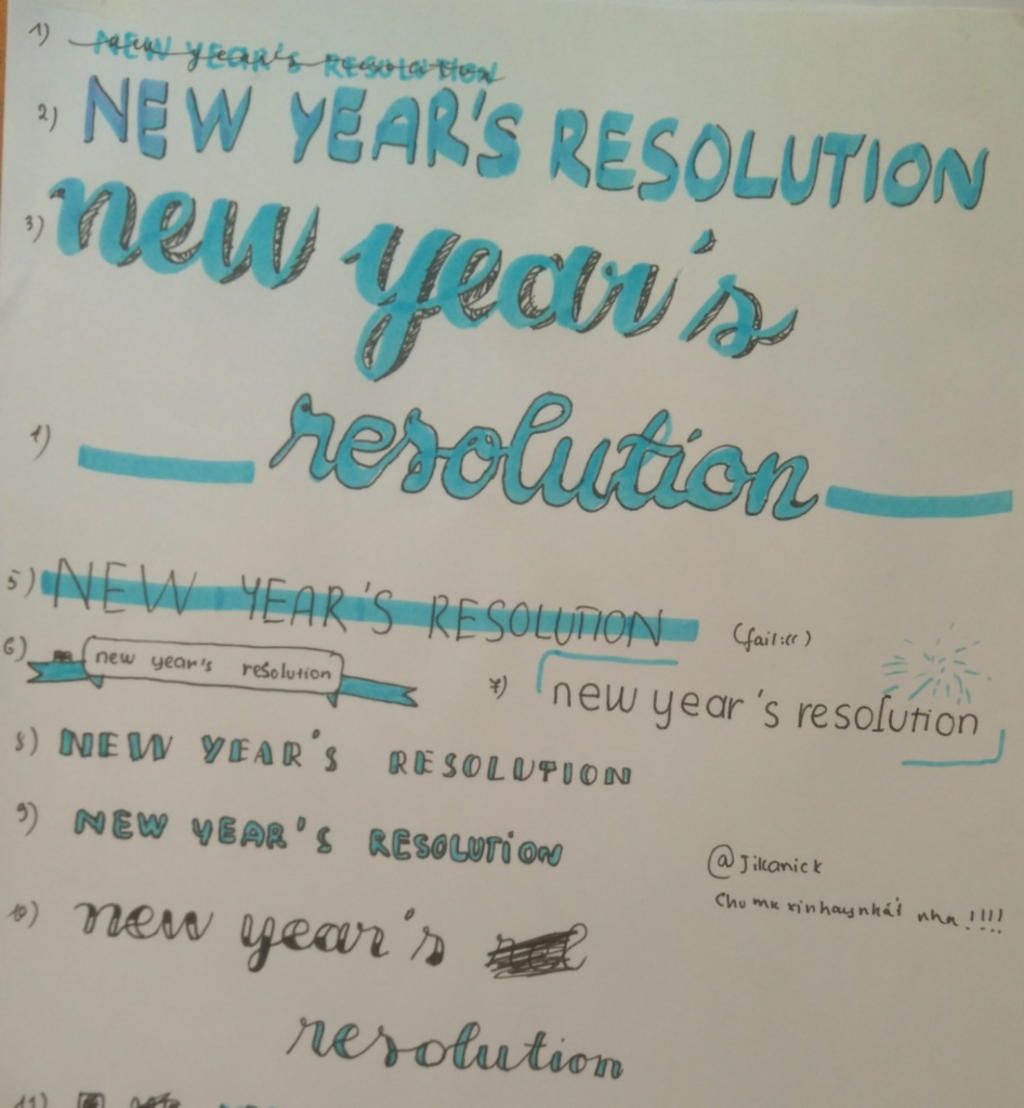 1) NEW YEAR'S RESOLUTION
new year's resolution
2) NEW YEAR'S RESOLUTION
3) new year's
4) resolution
5) NEW YEAR'S RESOLUTION (fail:(()
6) new year's resolution
7) new year's resolution
8) NEW YEAR'S RESOLUTION
9) NEW YEAR'S RESOLUTiON
@Jikanick
10) new year's
nha!!!!
resolution
11)